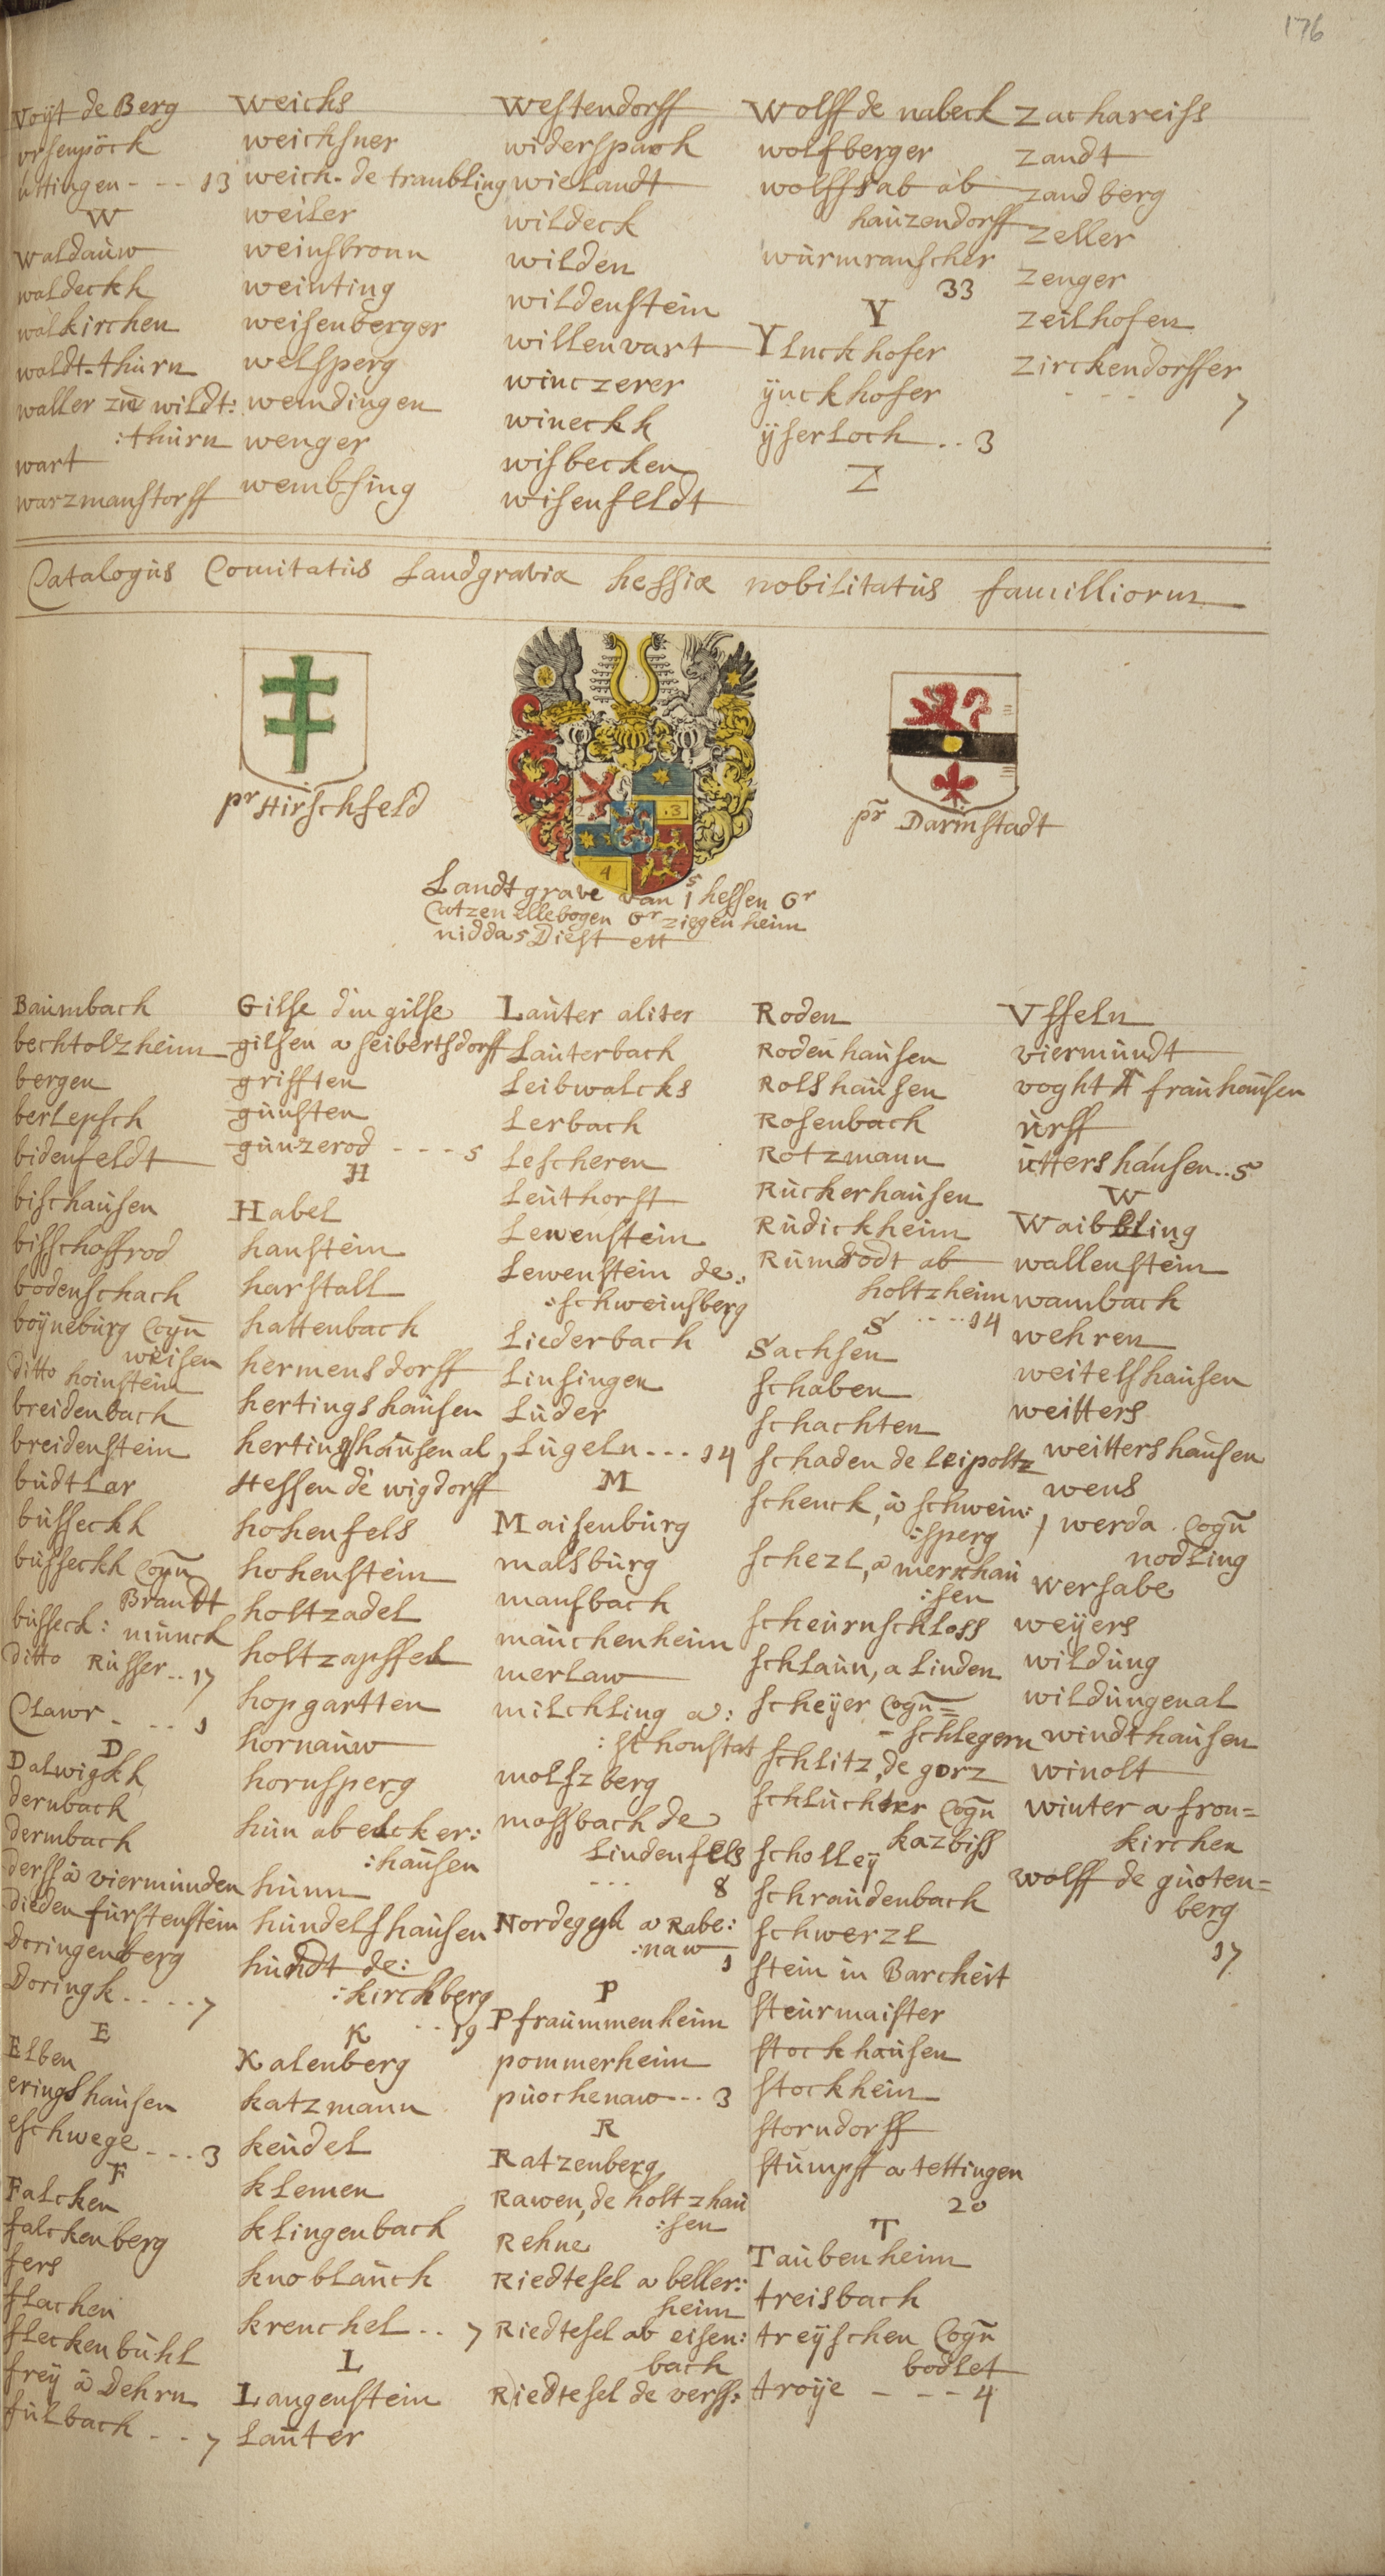 176
Voijt de Berg
vrsenpöck
üttingen - - - 13
W
Waldaúw
waldeckh
walkirchen
waldt-thúrn
waller zúe wildt:
:thúrn
wart
warzmanstorff
Weichs
weichsner
weich-de traubling
weiler
weinsbronn
weinting
weisenberger
welsperg
wemdingen
wenger
wembsing
Westendorff
widerspach
wielandt
wildeck
wilden
wildenstein
willenvart
winczerer
wineckh
wisbecken
wisenfeldt
Wolff de nabeck
wolfberger
wolffsab ab
haúzendorff
würmrauscher
33
Y
Ylnckhofer
ÿnckhofer
ÿserloch .. 3
Z
Zachareiss
zandt
zandberg
zeller
zenger
zeilhofen
zirckendorffer
- - - 7
Catalogús Comitatús Landgravia hessiæ nobilitatús familliorum
pr Hirschfeld
pr Darmstadt
2
3
4
5
Landtgrave van 1 hessen Gr
Catzenellebogen Gr ziegenheim
nidda 5 Diest ett
Baúmbach
bechtolzheim
bergen
berlepsch
bidenfeldt
bischaúsen
bisschoffrod
bodenschach
boÿnebúrg Cogn
weisen
ditto hoinstein
breidenbach
breidenstein
búdtlar
bússeckh
bússeckh Cogn
Brandt
bússeck: múnch
ditto Rússer .. 17
Clawr - - - 1
D
Dalwigkh
dernbach
dermbach
derss á viermúnden
dieden fúrstenstein
Doringenberg
Doringk - - - - 7
E
Elben
eringshaúsen
eschwege - - - 3
F
Falcken
falckenberg
fers
flachen
fleckenbúhl
freÿ á Dehrn
fúlbach - - - 7
Gilse din gilse
gilsen a seibertsdorff
grifften
gúnsten
gúnzerod - - - - 5
H
Habel
hanstein
harstall
hattenbach
hermensdorff
hertingshaúsen
hertingshaúsen al,
Hessen de wigdorff
hohenfels
hohenstein
holtzadel
holtzapffel
hopgartten
hornaúw
hornsperg
hún abelcker:
:haúsen
húnn
húndelshaúsen
húndt de:
:kirchberg
- - 19
K
Kalenberg
katzmann
keúdel
klemen
klingenbach
knoblaúch
krenchel .. 7
L
Langenstein
Laúter
Laúter aliter
Laúterbach
Leibwalcks
Lerbach
Lescheren
Leúthorst
Lewenstein
Lewenstein de:
:schweinsberg
Liederbach
Linsingen
Lúder
Lúgeln - - - 14
M
Maisenbúrg
malsbúrg
mansbach
maúchenheim
merlaw
milchling a:
:schonstat
molszberg
mossbach de
Lindenfels
- - - 8
Nordegyk a Rabe:
:naw
1
P
Pfraúmmenheim
pommerheim
púochenaw - - - 3
R
Ratzenberg
Rawen, de holtzhaú
:sen
Rehne
Riedtesel a beller:
heim
Riedtesel ab eisen:
bach
Riedtesel de verss:
Roden
Rodenhaúsen
Rolshaúsen
Rosenbach
Rotzmann
Rúckerhaúsen
Rúdickheim
Rúmrodt ab
holtzheim
- - - - 14
S
Sachsen
schaben
schachten
schaden de leipoltz
schenck, á schwein:
:sperg
schezl, a merkhaú
:sen
scheúrnschloss
schlaún, a linden
scheÿer Cogn=
- schlegern
schlitz, de gorz
schlúchter Cogn
kazbiss
scholleÿ
schraúdenbach
schwerzl
stein in Barcheit
steúrmaister
stockhaúsen
stockheim
storndorff
stúmpff a tettingen
20
T
Taúbenheim
treisbach
treÿschen Cogn
bodlet
troÿe - - - - 4
Vsseln
viermúndt
voght A fraúhaúsen
úrff
úttershaúsen .. 5
W
Waibbling
wallenstein
wambach
wehren
weitelshaúsen
weitters
weittershaúsen
wens
werda Cogn
nodling
wersabe
weÿers
wildúng
wildúngenal
windthaúsen
winolt
winter a fron=
kirchen
wolff de gúoten=
berg
17